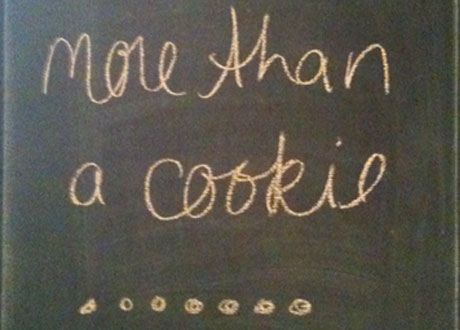 more than
a cookie
.......